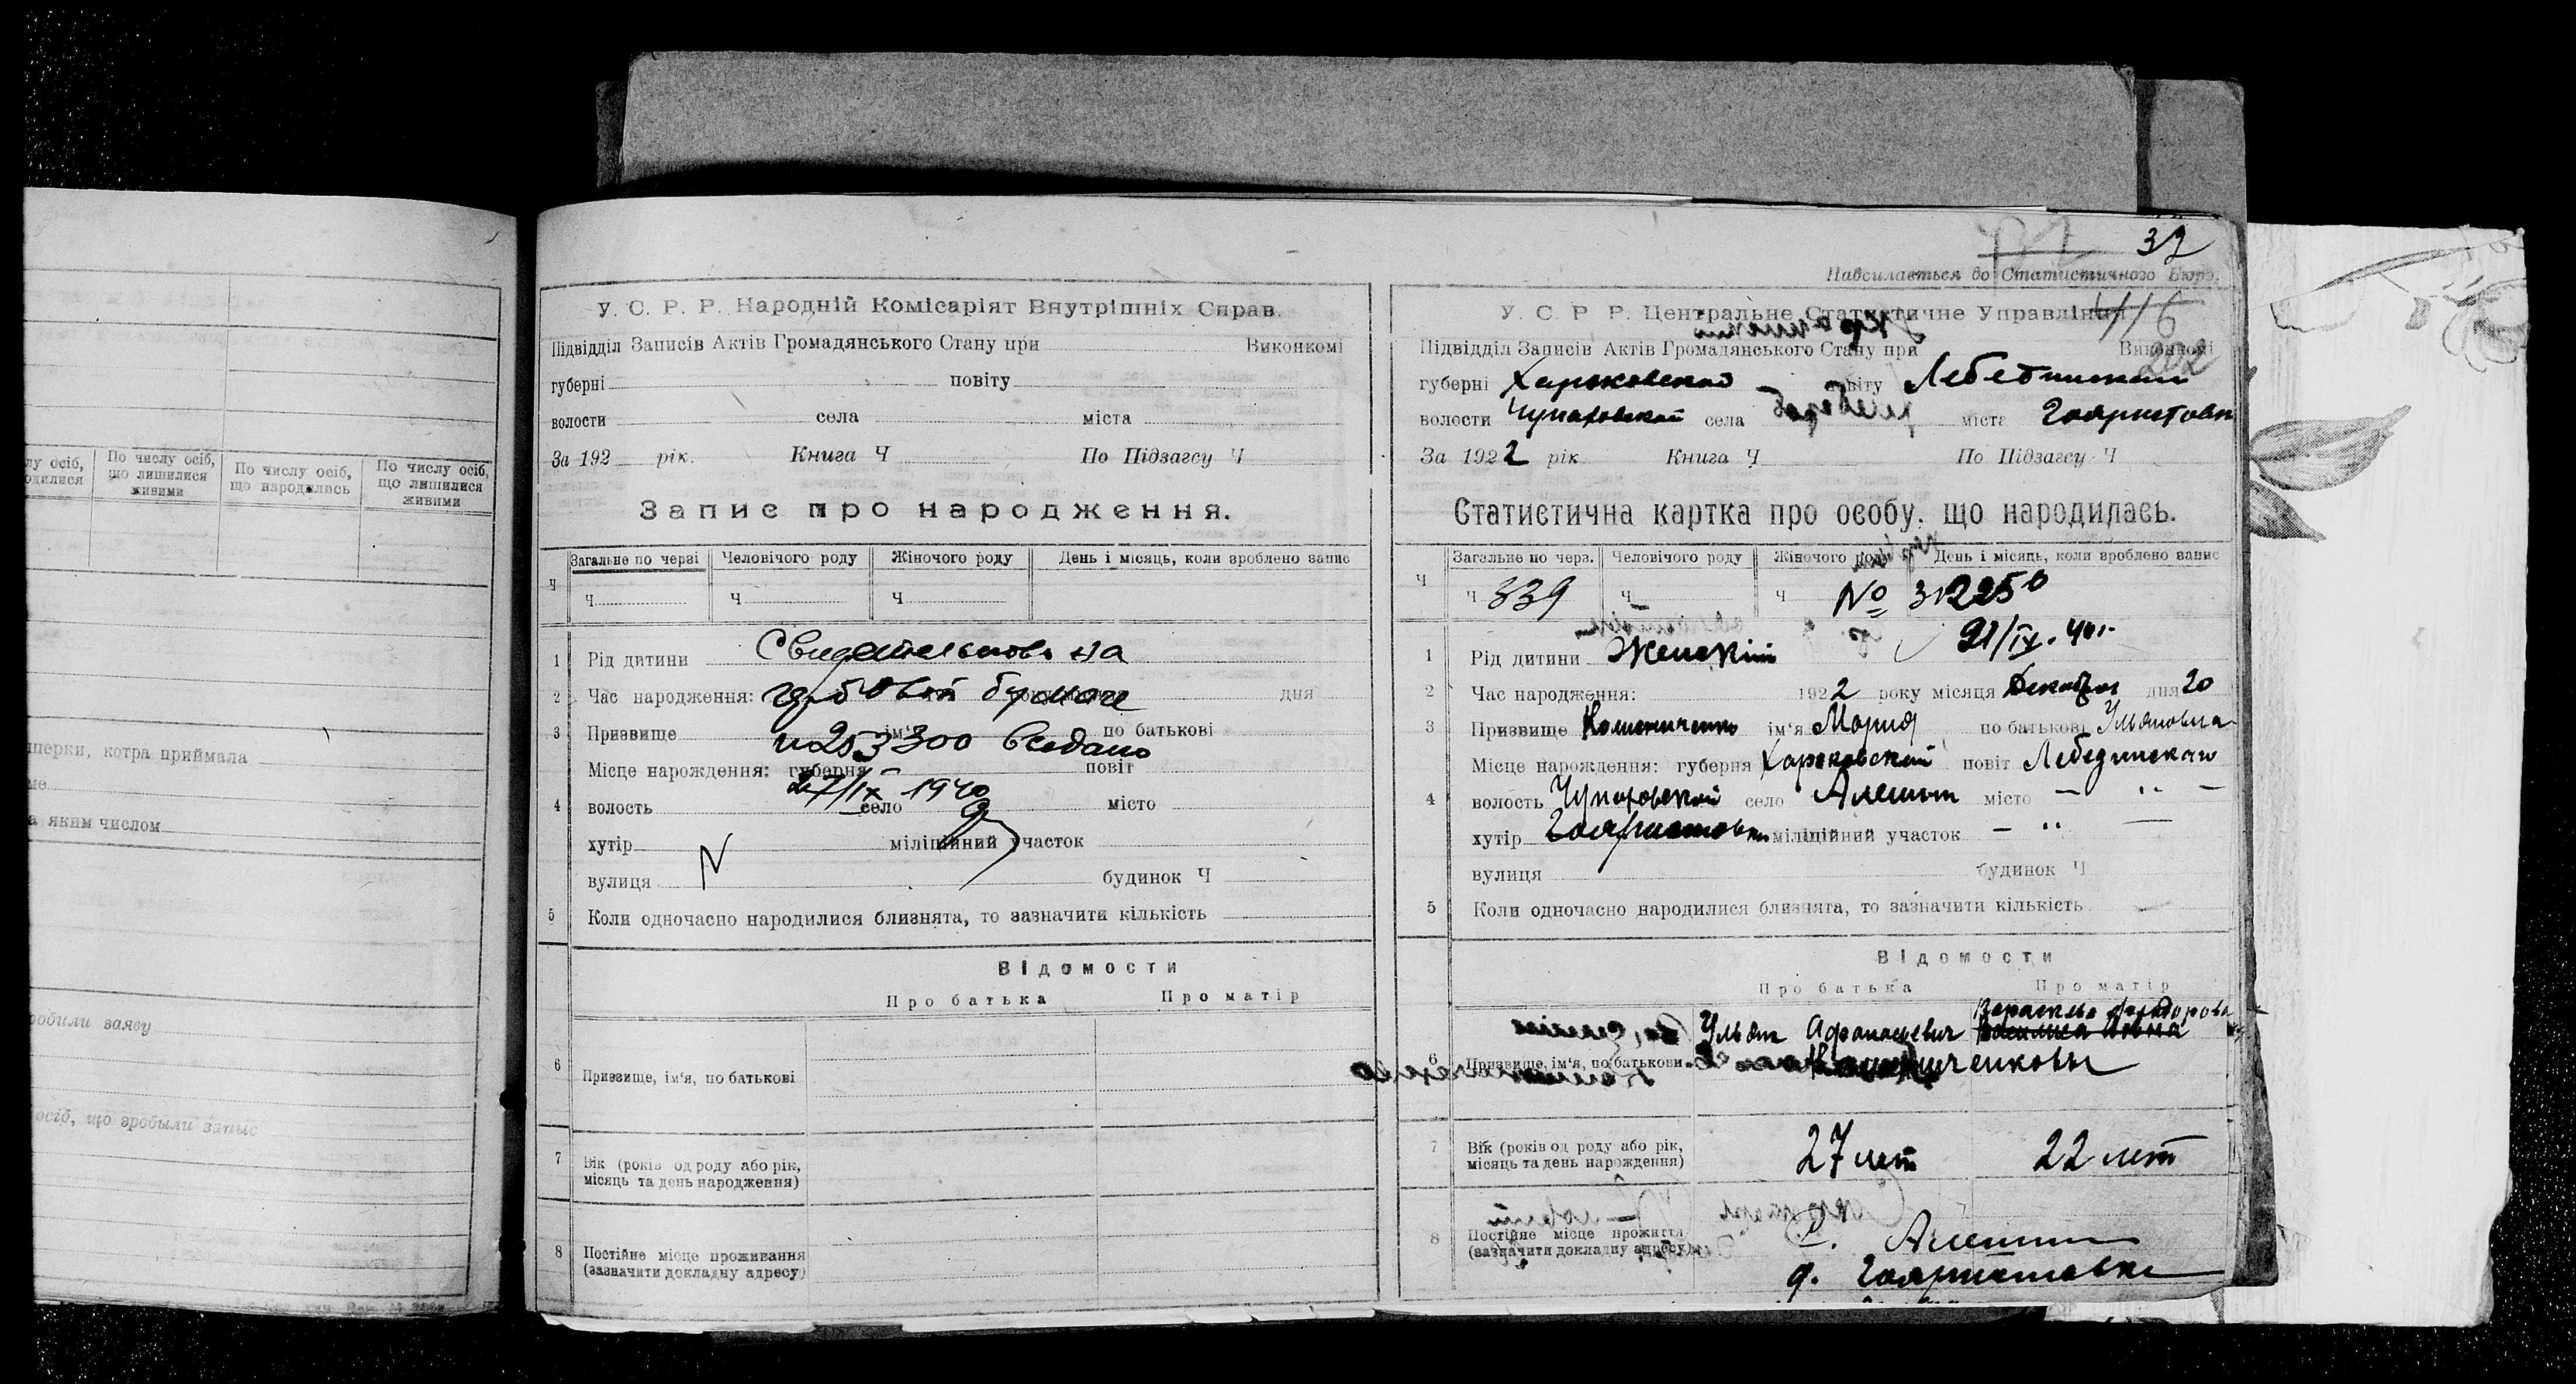 лу осіб,
одилися
По числу осіб,
що лишилися
живими
По числу осіб,
що народились
По числу осіб,
що лишилися
живими
шерки, котра приймала
ме
а яким числом
робили заяву
осіб, що зробыли запыс
У. С. Р. Р. Народній Комісаріят Внутрішніх Справ.
Підвідділ Записів Актів Громадянського Стану при Виконкомі
губерні повіту
волости села міста
За 192 рік. Книга Ч По Підзагсу Ч
Запис про народження.
Ч Загальне по черзі Человічого роду Жіночого роду День і місяць, коли зроблено запис
Ч Ч Ч
1 Рід дитини Свидетельство на
2 Час народження: гербовой бумаге дня
3 Призвище ім'я по батькові
№ 253300 выдано
Місце народження: губерня повіт
27/IX 1940
4 волость село місто
хутір міліційний участок
вулиця будинок Ч
5 Коли одночасно народилися близнята, то зазначити кількість
Відомости
Про батька Про матір
6 Призвище, ім'я, по батькові
7 Вік (років од роду або рік,
місяць та день народження)
8 Постійне місце проживання
(зазначити докладну адресу)
32
Надсилається до Статистичного Бюро.
У. С. Р. Р. Центральне Статистичне Управління
116
202
Підвідділ Записів Актів Громадянського Стану при Виконкомі
губерні Харьковской повіту Лебединский
волости Чупаховской села міста Гояристовки
За 1922 рік Книга Ч По Підзагсу Ч
Статистична картка про особу, що народилась.
Ч Загальне по черз. Человічого роду Жіночого роду День і місяць, коли зроблено запис
Ч 339 Ч Ч № 312250
21/IX. 40г.
1 Рід дитини Женский
2 Час народження: 1922 року місяця Декабря дня 20
3 Призвище Калиниченко ім'я Мария по батькові Ульяновна
Місце народження: губерня Харьковской повіт Лебединского
4 волость Чупаховской село Алешни місто — „ —
хутір Гояристовки міліційний участок — „ —
вулиця будинок Ч
5 Коли одночасно народилися близнята, то зазначити кількість —
Відомости
Про батька Про матір
Ульян Афанасиевич Федорова
6 Призвище, ім'я, по батькови Калиниченковы
7 Вік (років од роду або рік,
місяць та день народження) 27 лет 22 лет
8 Постійне місце прожиття
(зазначити докладну адресу) с. Алешни
д. Гояристовки